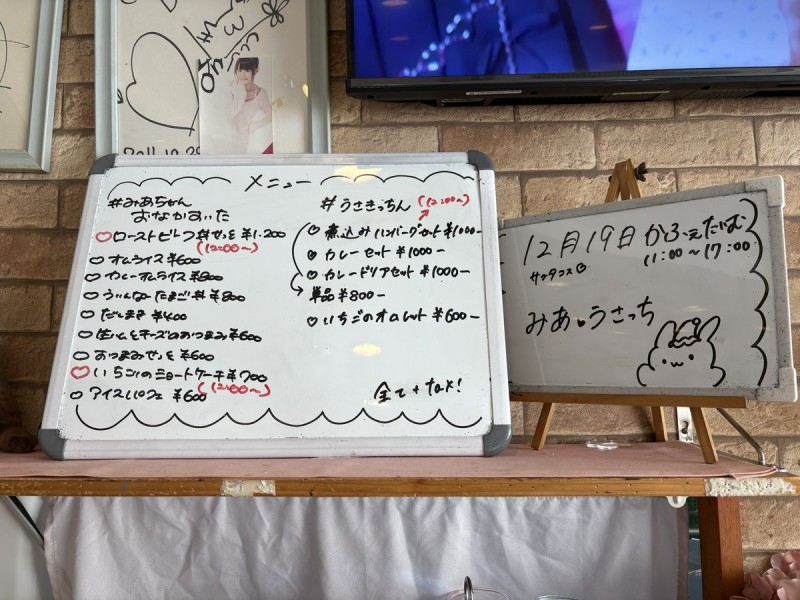 メニュー
#みあちゃん
おなかすいた
ローストビーフ丼セット ¥1.200
(12:00~)
オムライス ¥600
カレーオムライス ¥800
ういんなーたまご丼 ¥800
だしまき ¥400
生ハムとチーズのおつまみ ¥600
おつまみセット ¥600
いちごのショートケーキ ¥700
(12:00~)
アイスパフェ ¥600
#うさきっちん (12:00~)
煮込みハンバーグセット ¥1000-
カレーセット ¥1000-
カレードリアセット ¥1000-
単品 ¥800-
いちごのオムレット ¥600-
全て+tax!
12月19日
11:00~17:00
サンタコス
みあ うさっち